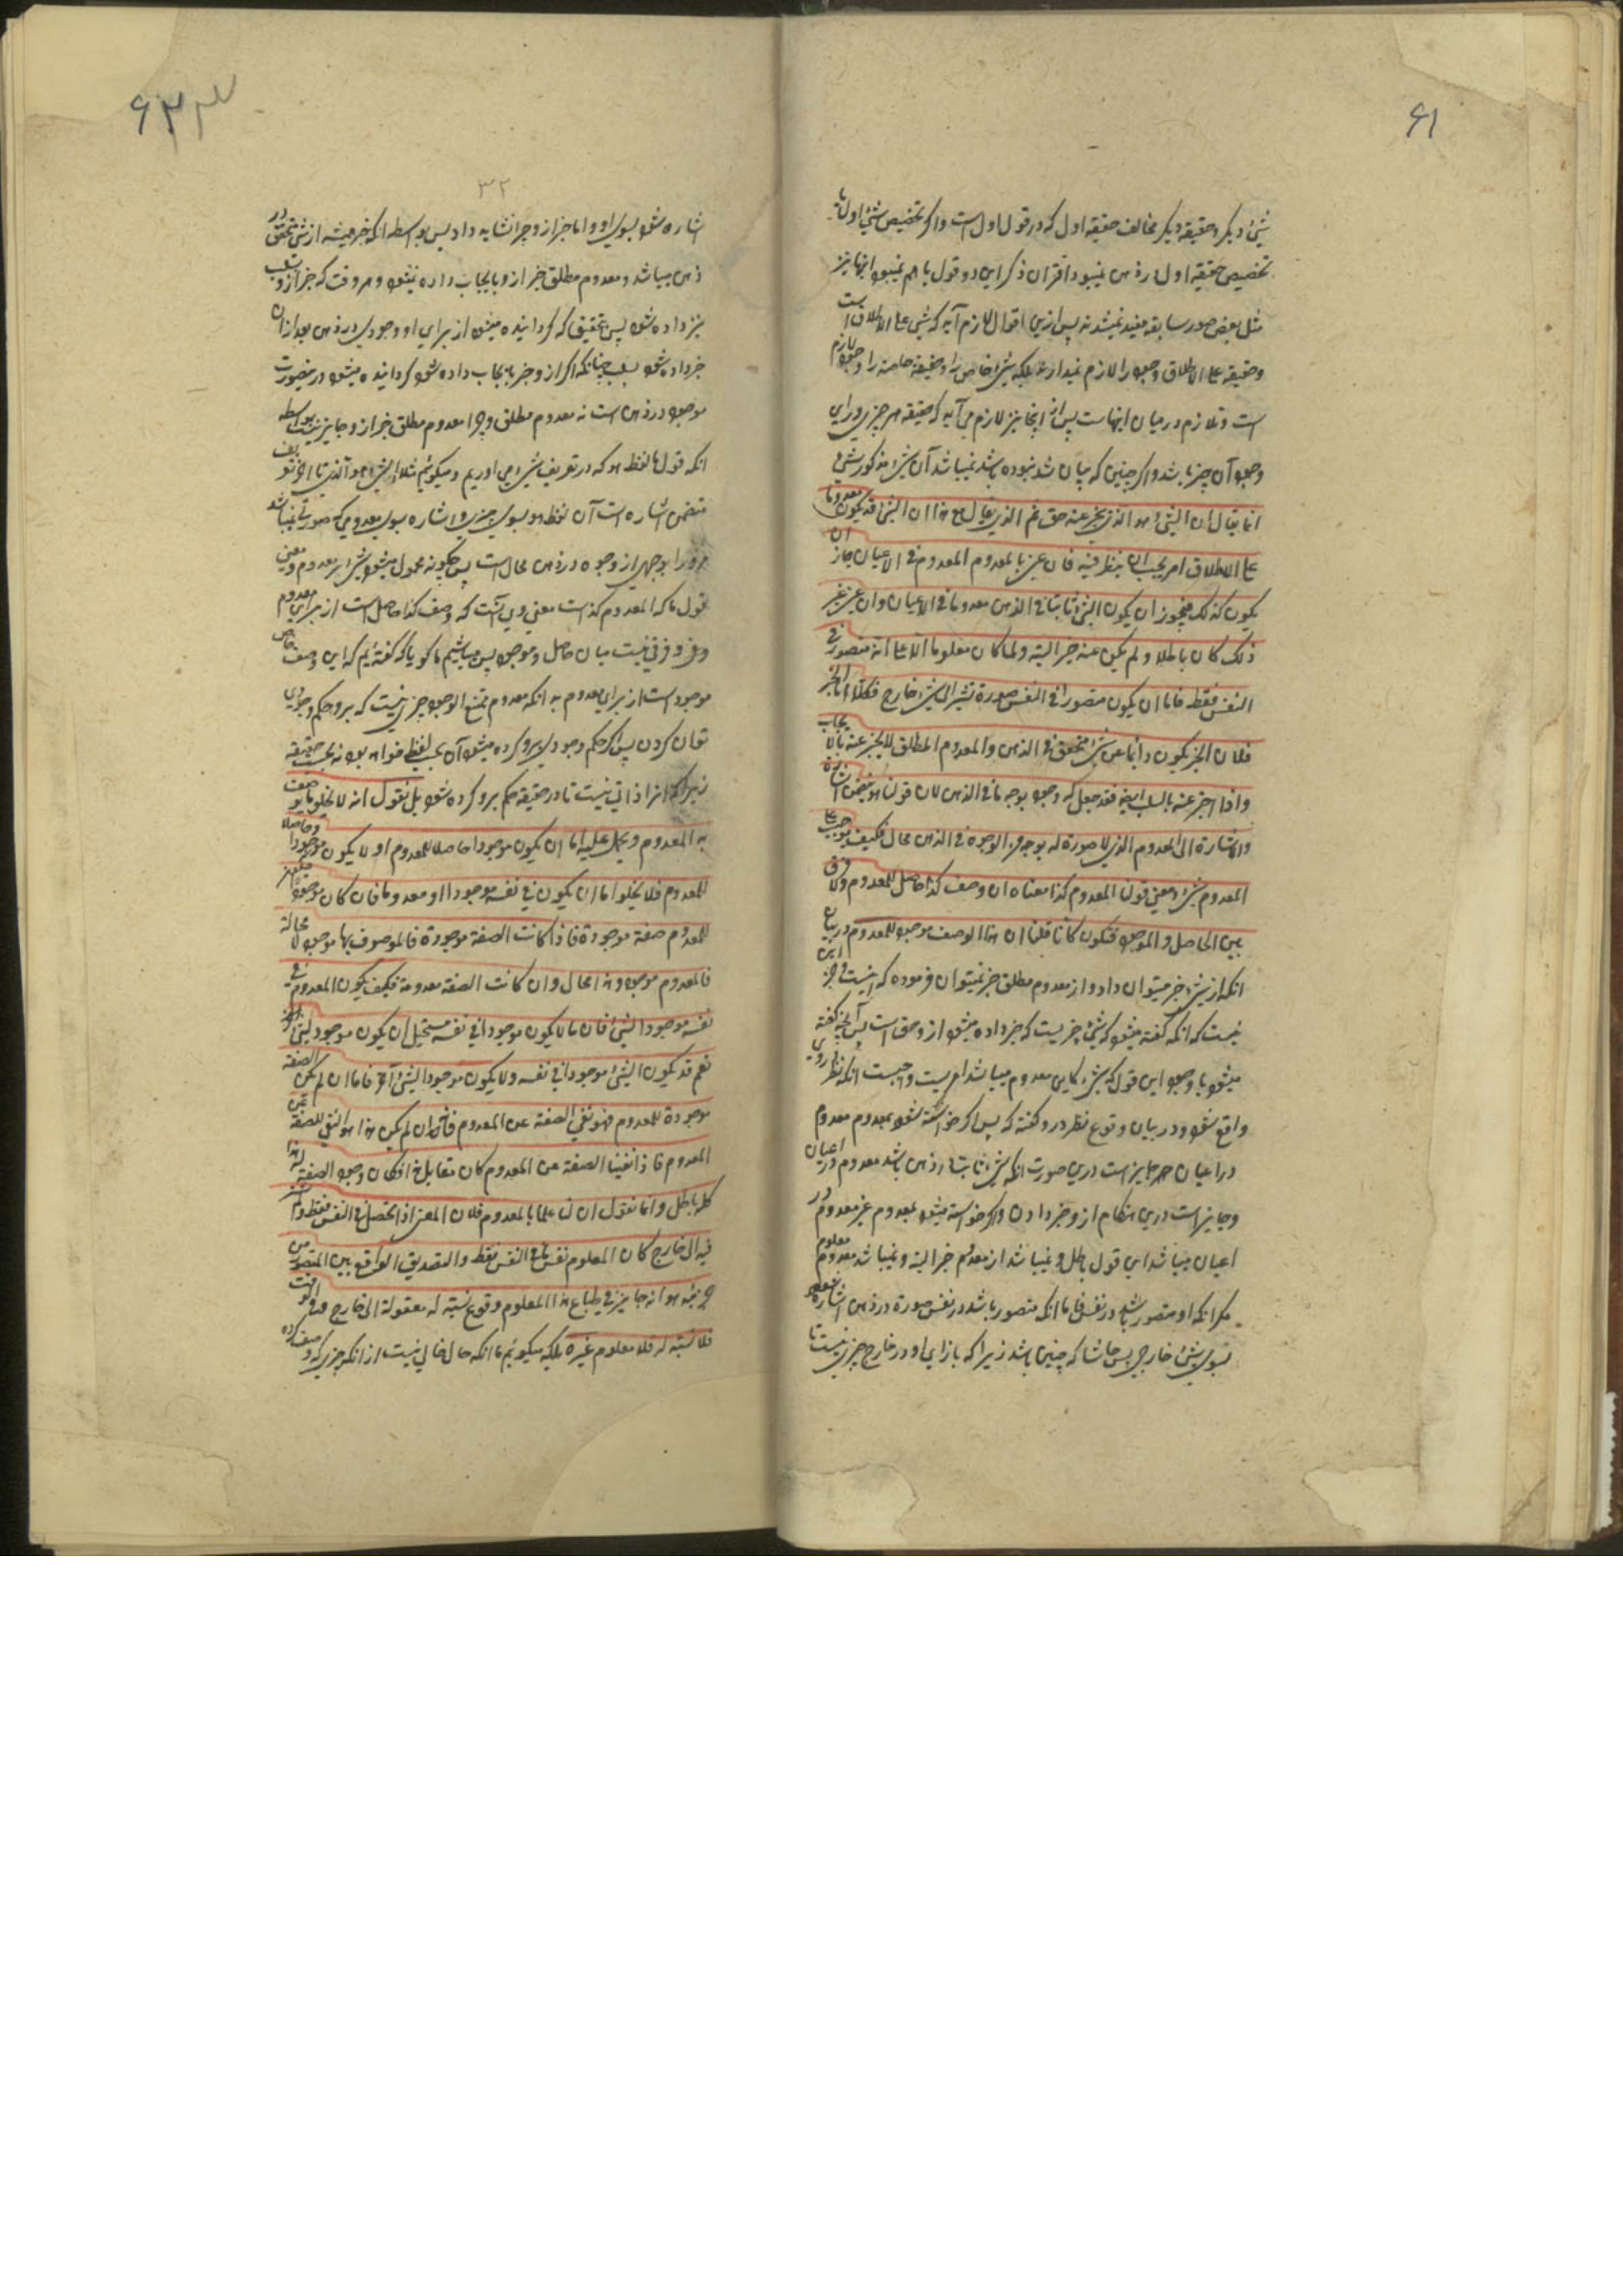 ۶۱
شیء دیگر و حقیقه دیگر مخالف حقیقه اول که در قول اول است و اگر تخصیص شیء اول با
تخصیص حقیقه اول در ذهن نمیبود اقتران ذکر این دو قول با هم نمیبود اینها نیز
مثل بعض صور سابقه مفید نمیشدند پس ازین اقوال لازم آید که شیء علی الاطلاق است
و حقیقه علی الاطلاق وجود را لازم نمیدارند بلکه شیء خاص را و حقیقه خاصه را وجود لازم
است و تلازم در میان اینهاست پس از اینجا نیز لازم می آید که حقیقه هر چیزی ورای
وجود آن چیز باشد و اگر چنین که بیان شد نبوده باشد نمیباشد آن شیء مذکور شیء
انما یقال ان الشیء هو الذی یخبر عنه حق ثم الذی یقال مع هذا ان الشیء قد یکون معدوما
علی الاطلاق امر یجب ان ینظر فیه فان عنی بالمعدوم المعدوم فی الاعیان جاز ان
یکون کذلک فیجوز ان یکون الشیء ثابتا فی الذهن معدوما فی الاعیان و ان عنی غیر
ذلک کان باطلا و لم یکن عنه خبر البته و لما کان معلوما الا علی انه متصور فی
النفس فقط فاما ان یکون متصورا فی النفس صورة تشیر الی شیء خارج فکلا اما الخبر
فلان الخبر یکون دائما عن شیء متحقق فی الذهن والمعدوم المطلق لا یخبر عنه بالایجاب
واذا اخبر عنه بالسلب ایضا فقد جعل له وجود بوجه ما فی الذهن لان قولنا هو یتضمن اشارة
والاشارة الی المعدوم الذی لا صورة له بوجه من الوجوه فی الذهن محال فکیف یوجب علی
المعدوم شیء و معنی قولنا المعدوم کذا معناه ان وصف کذا حاصل للمعدوم و لا فرق
بین الحاصل والموجود فنکون کانا قلنا ان هذا الوصف موجود للمعدوم در بیان
انکه از شیء خبر میتوان داد و از معدوم مطلق خبر نمیتوان فرموده که این
نیست که انکه گفته میشود که شیء چیزیست که خبر داده میشود ازو حق است پس آنچه گفته
میشود با وجود این قول که شیء گاهی معدوم میباشد امریست واجبست انکه نظر در وی
واقع شود و در بیان وقوع نظر درو گفته که پس اگر خواسته شود بمعدوم معدوم
در اعیان هر جایز است درین صورت انکه شیء ثابتا در ذهن باشد معدوم در اعیان
و جایز است درین هنگام ازو خبر دادن و اگر خواسته میشود بمعدوم غیر معدوم در
اعیان میباشد این قول باطل و نمیباشد از معدوم خبر البته و نمیباشد معدوم معلوم
مگر انکه او متصور باشد در نفس فاما انکه متصور باشد در نفس صورة در ذهن اشاره نموده
بسوی شیء خارج پس حاشا که چنین باشد زیرا که بازای او در خارج چیزی نیست تا
۶۲
۳۲
اشاره شود بسوی او و اما خبر ازو چرا نشاید داد پس بواسطه انکه خبر همیشه از شیء متحقق در
ذهن میباشد و معدوم مطلق خبر ازو بایجاب داده نمیشود و هر وقت که خبر ازو بسلب
نیز داده شود پس بتحقیق که گردانیده میشود از برای او وجودی در ذهن بعد ازان
خبر داده شود بسلب چنانکه اگر ازو خبر بایجاب داده شود گردانیده میشود در ینصورت
موجود در ذهن است نه معدوم مطلق و چرا معدوم مطلق خبر ازو جایز نیست بواسطه
انکه قول ما لفظ هو که در تعریف شیء می اوریم و میگوئیم مثلا الشیء هو الذی تا اخر تعریف
متضمن اشاره است آن لفظ هو بسوی چیزی و اشاره بسوی معدومی که صورتی نمیباشد
مرورا بوجهی از وجوه در ذهن محال است پس چگونه محمول میشود شیء بر معدوم و معنی
قول ما که المعدوم کذا است معنی وی آنست که وصف کذا حاصل است از برای معدوم
و هر و فرقی نیست میان حاصل و موجود پس میباشیم ما گویا که گفته ایم که این وصف خاص
موجود است از برای معدوم به انکه معدوم ممتنع الوجود چیزی نیست که برو حکم وجودی
توان کردن پس اگر حکم وجودی برو کرده میشود آن بحسب لفظ خواهد بود نه بحسب حقیقه
زیرا که انرا ذاتی نیست تا در حقیقه حکم برو کرده شود بل نقول انه لا یخلو ما یوصف
به المعدوم و یحمل علیه اما ان یکون موجودا حاصلا للمعدوم او لا یکون موجودا و حاصلا
للمعدوم فلا یخلو اما ان یکون فی نفسه موجودا او معدوما فان کان موجودا فیکون
للمعدوم صفة موجودة فاذا کانت الصفة موجودة فالموصوف بها موجود لا محالة
فالمعدوم موجود و هذا محال و ان کانت الصفة معدومة فکیف یکون المعدوم فی
نفسه موجودا لشیء فان ما لا یکون موجودا فی نفسه مستحیل ان یکون موجودا لشیء آخر
نعم قد یکون الشیء موجودا فی نفسه و لا یکون موجودا لشیء آخر فاما ان لم تکن الصفة
موجودة للمعدوم فهو نفی الصفة عن المعدوم فانه ان لم یکن هذا هو النفی للصفة عن
المعدوم فاذا نفینا الصفة عن المعدوم کان مقابل هذا فکان وجود الصفة له و هذا
کله باطل و انما نقول ان لنا علما بالمعدوم فلان المعنی اذا تحصل فی النفس فقط و لم یشر
فیه الی خارج کان المعلوم نفس ما فی النفس فقط والتصدیق الواقع بین المتصور من
جزئیه هو انه جایز فی طباع هذا المعلوم وقوع نسبة له معقولة الی خارج و فی هذا الوقت
فلا نسبة له فلا معلوم غیره بلکه میگوئیم ما انکه حال خالی نیست از انکه چیزی که وصف کرده